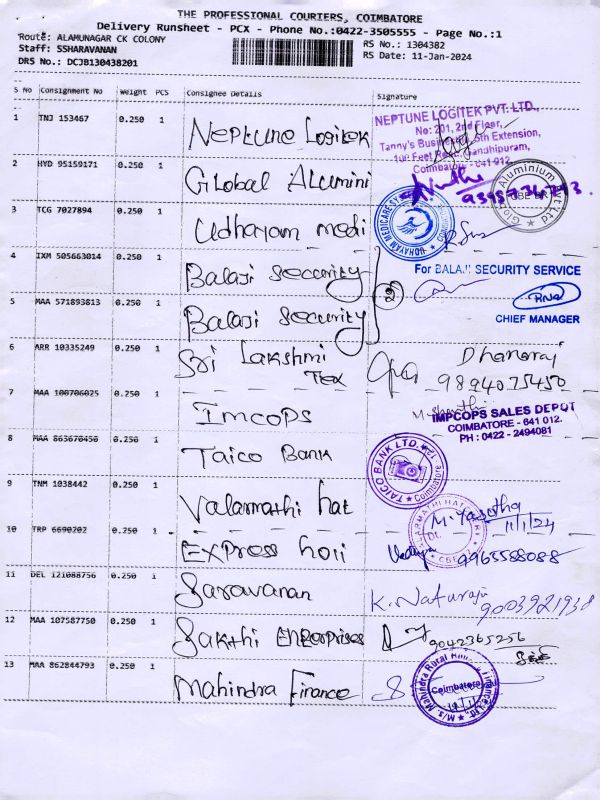 THE PROFESSIONAL COURIERS, COIMBATORE
Delivery Runsheet - PCX - Phone No.:0422-3505555 - Page No.:1
Route: ALAMUNAGAR CK COLONY
RS No.: 1304382
Staff: SSHARAVANAN
RS Date: 11-Jan-2024
DRS No.: DCJB130438201
S No Consignment No Weight PCS Consignee Details Signature
1 TNJ 153467 0.250 1 Neptune Logitek
NEPTUNE LOGITEK PVT. LTD.,
No: 201, 2nd Floor,
100 Feet Road, Gandhipuram,
Coimbatore - 641 012.
2 HYD 95159171 0.250 1 Global Alumini
3 TCG 7027894 0.250 1 Udhayam medi
4 IXM 505663014 0.250 1 Balaji Security
For BALAJI SECURITY SERVICE
5 MAA 571893813 0.250 1 Balaji Security
CHIEF MANAGER
6 ARR 10335249 0.250 1 Sri Lakshmi Tex
Dhanaraj
9894075450
7 MAA 100706025 0.250 1 Imcops
IMPCOPS SALES DEPOT
COIMBATORE - 641 012.
PH : 0422 - 2494081
8 MAA 863670450 0.250 1 Taico Bank
TAICO BANK LTD. Coimbatore
9 TNM 1038442 0.250 1 Valarmathi hat
M. Yasotha
11/1/24
10 TRP 6690202 0.250 1 Express
9965588088
11 DEL 121088756 0.250 1 Saravanan
K. Naturaju
9003921938
12 MAA 107587750 0.250 1 Sakthi Enterprises
9042365256
13 MAA 862844793 0.250 1 Mahindra Finance
Coimbatore